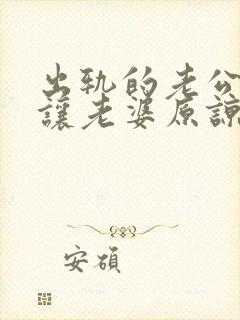 出轨的老公
讓老婆原諒
安碩